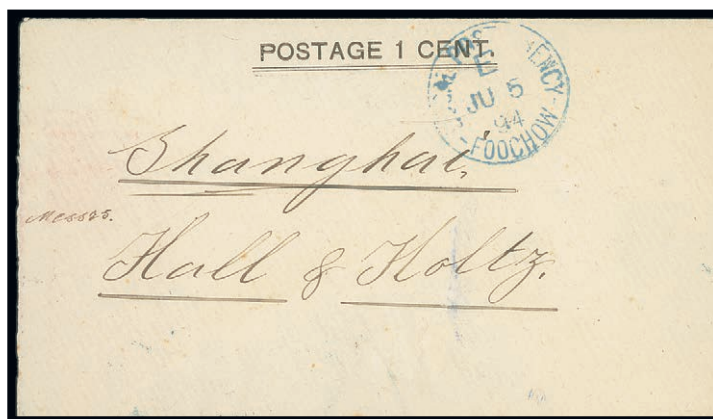 POSTAGE 1 CENT.
AGENCY
E
JU 5
94
-FOOCHOW-
Shanghai,
Messrs.
Hall & Holtz.